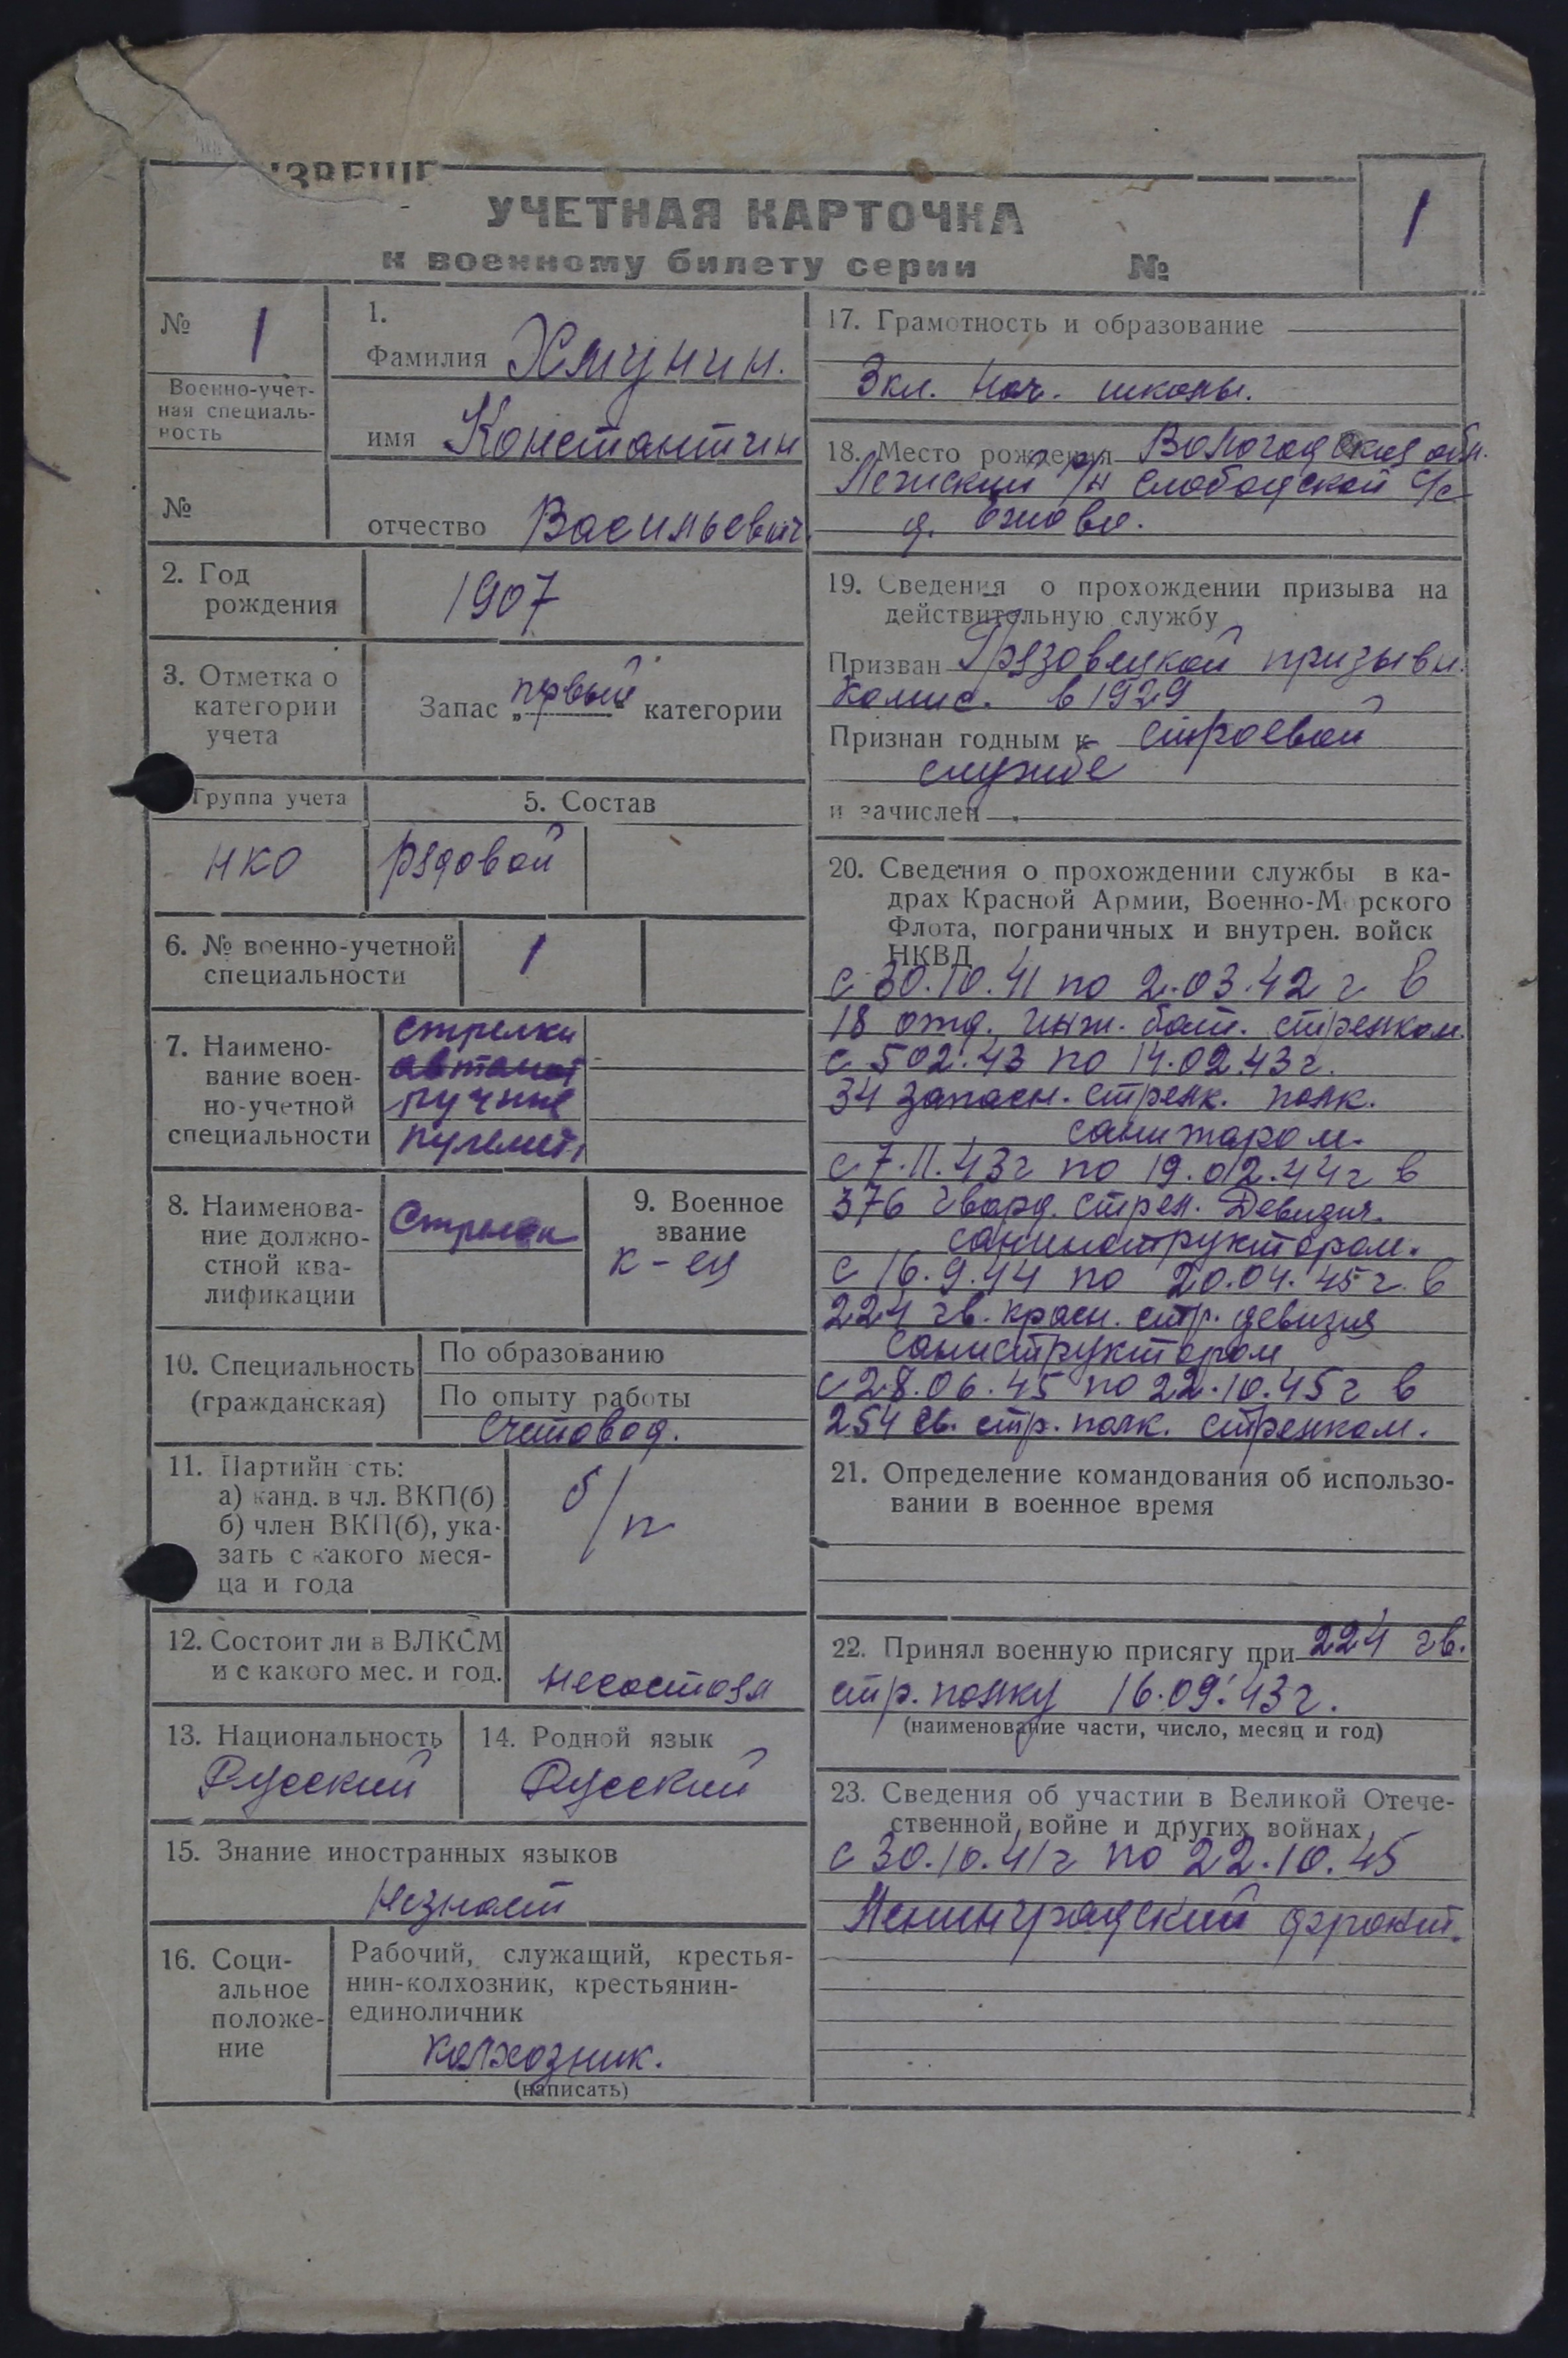 ИЗВЕЩЕ
УЧЕТНАЯ КАРТОЧКА
к военному билету серии №
1
№ 1
Военно-учет-
ная специаль-
ность
№
1.
Фамилия Хмунин.
имя Константин
отчество Васильевич
2. Год
рождения
1907
3. Отметка о
категории
учета
Запас „первый“ категории
Группа учета
НКО
5. Состав
рядовой
6. № военно-учетной
специальности
1
7. Наимено-
вание воен-
но-учетной
специальности
стрелки
автомат
ручные
пулемет.
8. Наименова-
ние должно-
стной ква-
лификации
Стрелок
9. Военное
звание
к-ец
10. Специальность
(гражданская)
По образованию
По опыту работы
Счетовод.
11. Партийн сть:
а) канд. в чл. ВКП(б)
б) член ВКП(б), ука-
зать с какого меся-
ца и года
б/п
12. Состоит ли в ВЛКСМ
и с какого мес. и год.
несостоял
13. Национальность
Русский
14. Родной язык
Русский
15. Знание иностранных языков
Незнает
16. Соци-
альное
положе-
ние
Рабочий, служащий, крестья-
нин-колхозник, крестьянин-
единоличник
колхозник.
(написать)
17. Грамотность и образование
3кл. нач. школы.
18. Место рождения Вологодская обл.
Лежский р/н Слободской с/с
д.
19. Сведения о прохождении призыва на
действительную службу
Призван Грязовецкой призывн.
комис. в 1929
Признан годным к строевой
службе
и зачислен
20. Сведения о прохождении службы в ка-
драх Красной Армии, Военно-Морского
Флота, пограничных и внутрен. войск
НКВД
с 30.10.41 по 2.03.42 г в
18 отд. инж. бат. стрелком.
с 502.43 по 14.02.43г.
34 запасн. стрелк. полк.
санитаром.
с 7.11.43г по 19.02.44г в
376 гвард. стрел. Девизия.
санинструктором.
с 16.9.44 по 20.04.45г. в
224 гв. красн. стр. девизия
саниструктором
с 28.06.45 по 22.10.45г в
254 св. стр. полк. стрелком.
21. Определение командования об использо-
вании в военное время
22. Принял военную присягу при 224 гв.
стр. полку 16.09.43г.
(наименование части, число, месяц и год)
23. Сведения об участии в Великой Отече-
ственной войне и других войнах
с 30.10.41г по 22.10.45
Ленинградский фронт.